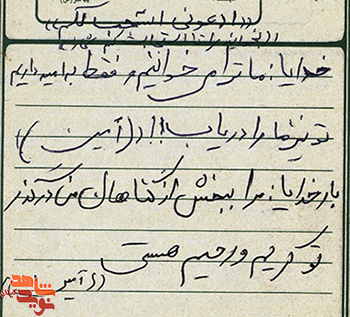 ((ادعونی استجب لکم))
خدایا: ما ترا می خوانیم و فقط به تو امید داریم
تو نیز ما را دریاب!!! ((آمین))
بار خدایا: مرا ببخش از گناهان من درگذر
تو کریم و رحیم هستی
((آمین))
شاهد نوید